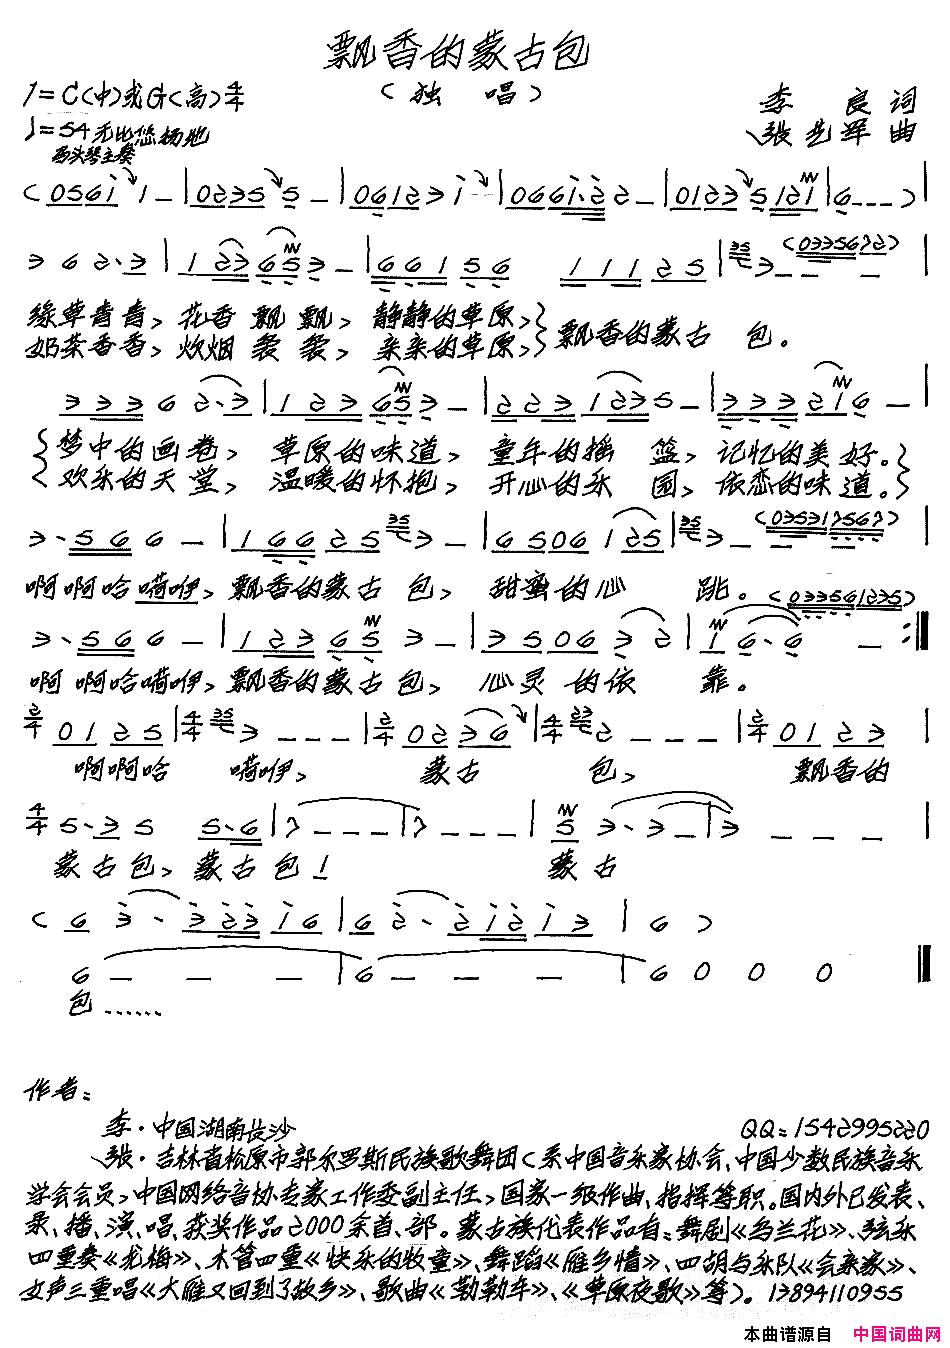 飘香的蒙古包
1=C(中)或G(高)4/4
(独 唱)
李 良 词
♩=54 无比悠扬地
张艺军 曲
马头琴主奏
(0561 1 – | 0235 5 – | 0612 3 1 | 0661·2 2 – | 0123 5 121 | 6 – – – )
3 6 2·3 | 1 23 65 3 – | 661 56 111 25 | 3 – – – (0335672)
绿草青青, 花香 飘 飘, 静静的草原,
飘香的蒙古 包。
奶茶香香, 炊烟 袅 袅, 亲亲的草原,
333 6 2·3 | 1 23 65 3 – | 223 123 5 – | 333 21 6 –
梦中的画卷, 草原的味道, 童年的摇 篮, 记忆的美好。
欢乐的天堂, 温暖的怀抱, 开心的乐 园, 依恋的味道。
3·56 6 – | 166 25 3 – | 6506 125 | 3 – – – (035317567)
啊啊哈嗬咿, 飘香的蒙古 包, 甜蜜的心 跳。
(033561235)
3·56 6 – | 123 65 3 – | 3506 3 2 | 1 6·6 – :‖
啊 啊哈嗬咿, 飘香的蒙古包, 心灵 的依 靠。
2/4 01 25 | 4/4 3 – – – | 2/4 02 36 | 4/4 2 – – – | 2/4 01 23 |
啊啊哈 嗬咿, 蒙古 包, 飘香的
4/4 5·3 5 5·6 | 7 – – – | 7 – – – | 5 3·3 – | 3 – – – |
蒙古包, 蒙古包! 蒙古
( 6 3· 323 16 | 6 2· 212 13 | 6 )
6 – – – | 6 – – – | 6 0 0 0 ‖
包……
作者:
李·中国湖南长沙
QQ:1542995220
张·吉林省松原市郭尔罗斯民族歌舞团(系中国音乐家协会、中国少数民族音乐
学会会员,中国网络音协专家工作委副主任,国家一级作曲、指挥等职。国内外已发表、
录、播、演、唱、获奖作品2000余首、部。蒙古族代表作品有:舞剧《乌兰花》、弦乐
四重奏《龙梅》、木管四重《快乐的牧童》、舞蹈《雁乡情》、四胡与乐队《会亲家》、
女声三重唱《大雁又回到了故乡》、歌曲《勒勒车》、《草原夜歌》等)。13894110955
本曲谱源自 中国词曲网